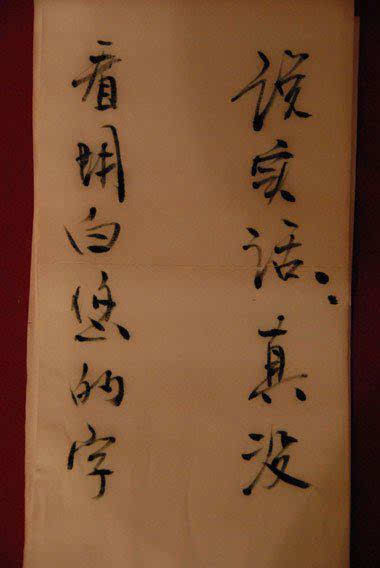 说实话、真没
看明白您的字